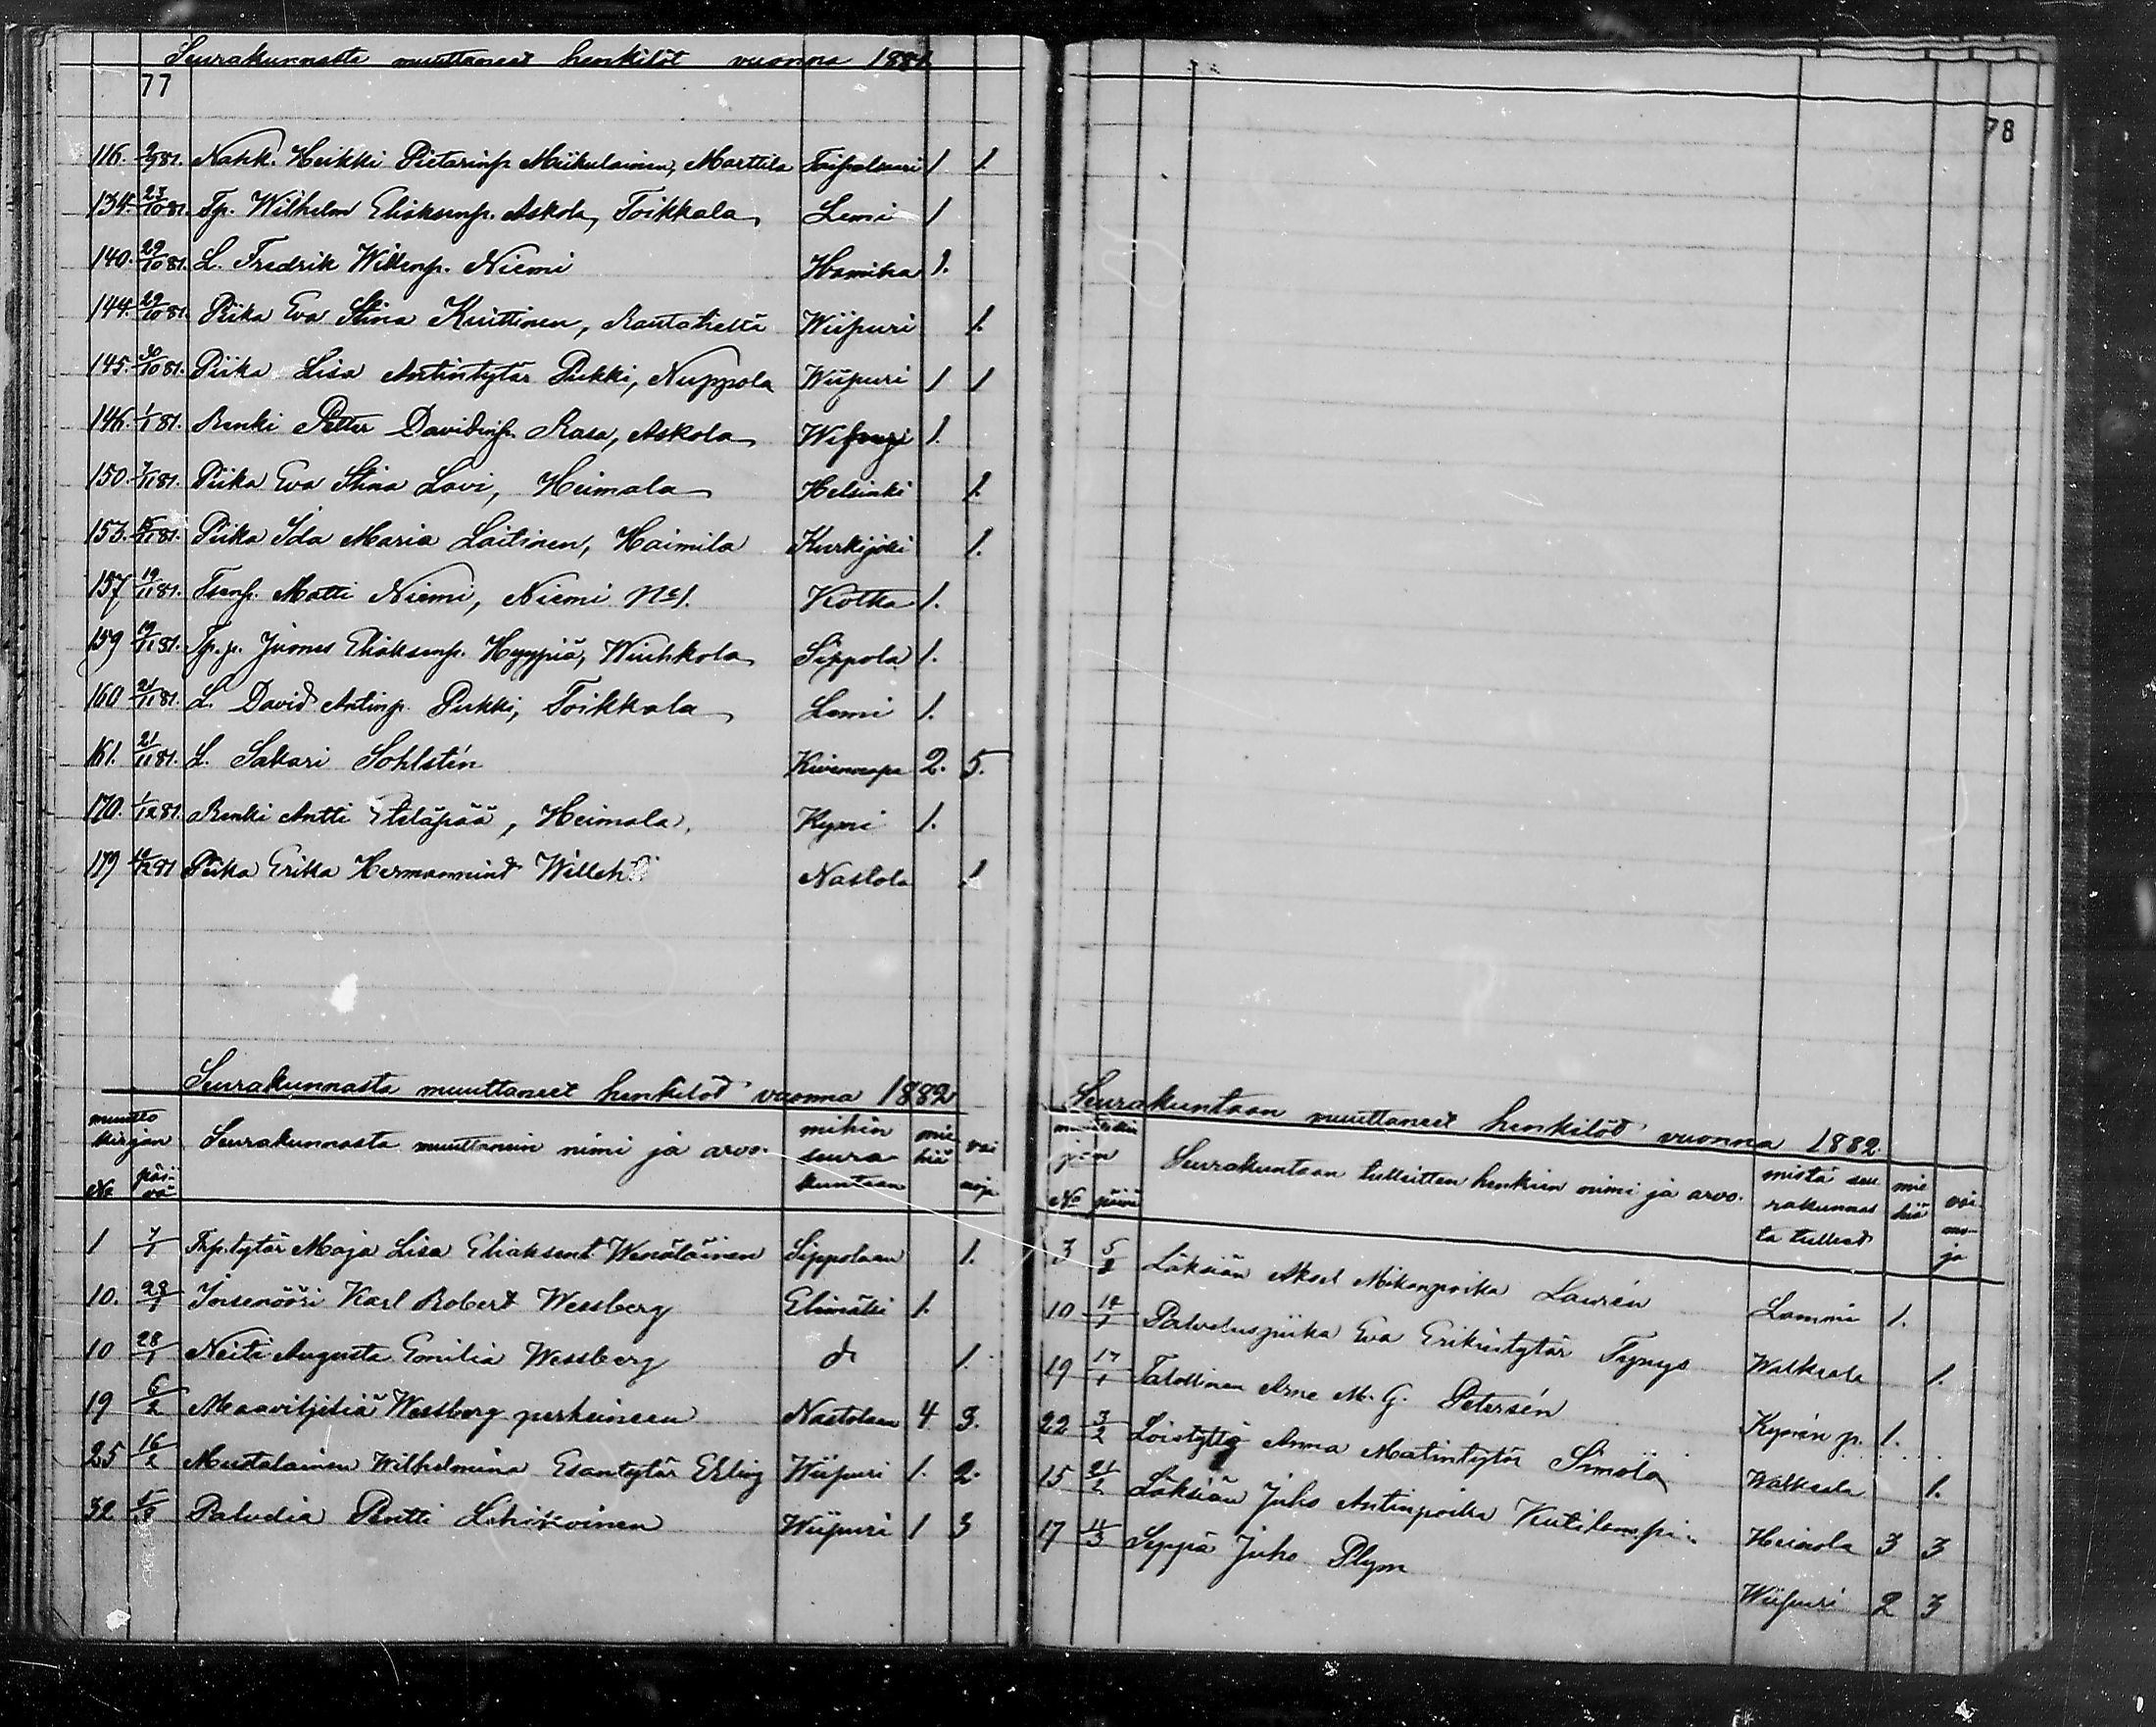 Seurakunnasta muuttaneet henkilöt vuonna 1881
77
116. 2/9 81. Nahk. Heikki Pietarinp. Miikulainen, Marttila Taipalsaari 1 1
134. 23/10 81. Tp. Wilhelm Eliaksenp. Askola, Toikkala Lemi 1
140. 29/10 81. L. Fredrik Willenp. Niemi Hamina 1.
144. 29/10 81. Piika Eva Stina Kuittinen, Rautahella Wiipuri 1.
145. 30/10 81. Piika Lisa Antintytär Pukki, Nuppola Wiipuri 1 1
146. 81. Renki Petter Davidinp. Rasa, Askola Wiipuri 1.
150. 7/11 81. Piika Eva Stina Lavi, Heimala Helsinki 1.
153. 15/11 81. Piika Ida Maria Laitinen, Haimila Kurkijoki 1.
157 19/11 81. Matti Niemi, Niemi No 1. Kotka 1.
159 19/11 81. Tp. p. Joones Eliaksenp. Hyyppiä, Wiuhkola Sippola 1.
160 21/11 81. L. David Antinp. Pukki, Toikkala Lemi 1.
161. 21/11 81. L. Sakari Sohlstén Kivennapa 2. 5.
170. 1/12 81. Renki Antti Eteläpää, Heimala, Kymi 1.
179 12 81 Piika Erika Hermannint Nastola 1
Seurakunnasta muuttaneet henkilöt vuonna 1882
muutto kirjan
No päivä
Seurakunnasta muuttanein nimi ja arvo.
mihin seurakuntaan
miehiä
vaimoja
1 7/1 Trp. tytär Maja Lisa Eliaksent. Wenäläinen Sippolaan 1.
10. 28/1 Insenööri Karl Robert Wessberg Elimäki 1.
10 28/1 Neiti Augusta Emilia Wessberg d:o 1.
19 6/2 Maaviljeliä Wessberg perheineen Nastolaan 4 3.
25 16/2 Mustalainen Wilhelmina Esantytär Ekling Wiipuri 1. 2.
32 Palvelia Pentti Lehikoinen Wiipuri 1 3
78
Seurakuntaan muuttaneet henkilöt vuonna 1882.
No päivä
Seurakuntaan tulleitten henkien nimi ja arvo.
mistä seurakunnasta tulleet
miehiä
vaimoja
3 5/2 Läksiän Aksel Mikonpoika Laurén Lammi 1.
10 14/1 Palveluspiika Eva Erikintytär Tynys Walkeala 1.
19 17/1 Talollinen Arne M. G. Petersén Kymin p. 1.
22 3/2 Loistyttö Anna Matintytär Simola Walkeala 1.
15 21/2 Läksiän Juho Antinpoika Heinola 3 3
17 11/3 Seppä Juho Plym Wiipuri 2 3